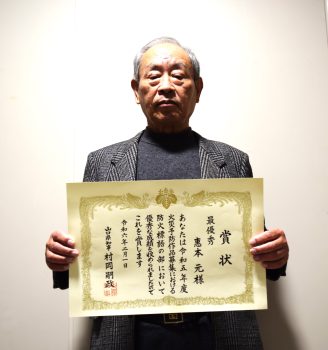 賞状
最優秀
惠本 元 様
あなたは令和五年度
火災予防作品募集における
防火標語の部において
優秀な成績を収められましたので
これを賞します
令和六年二月一日
山口県知事 村岡嗣政